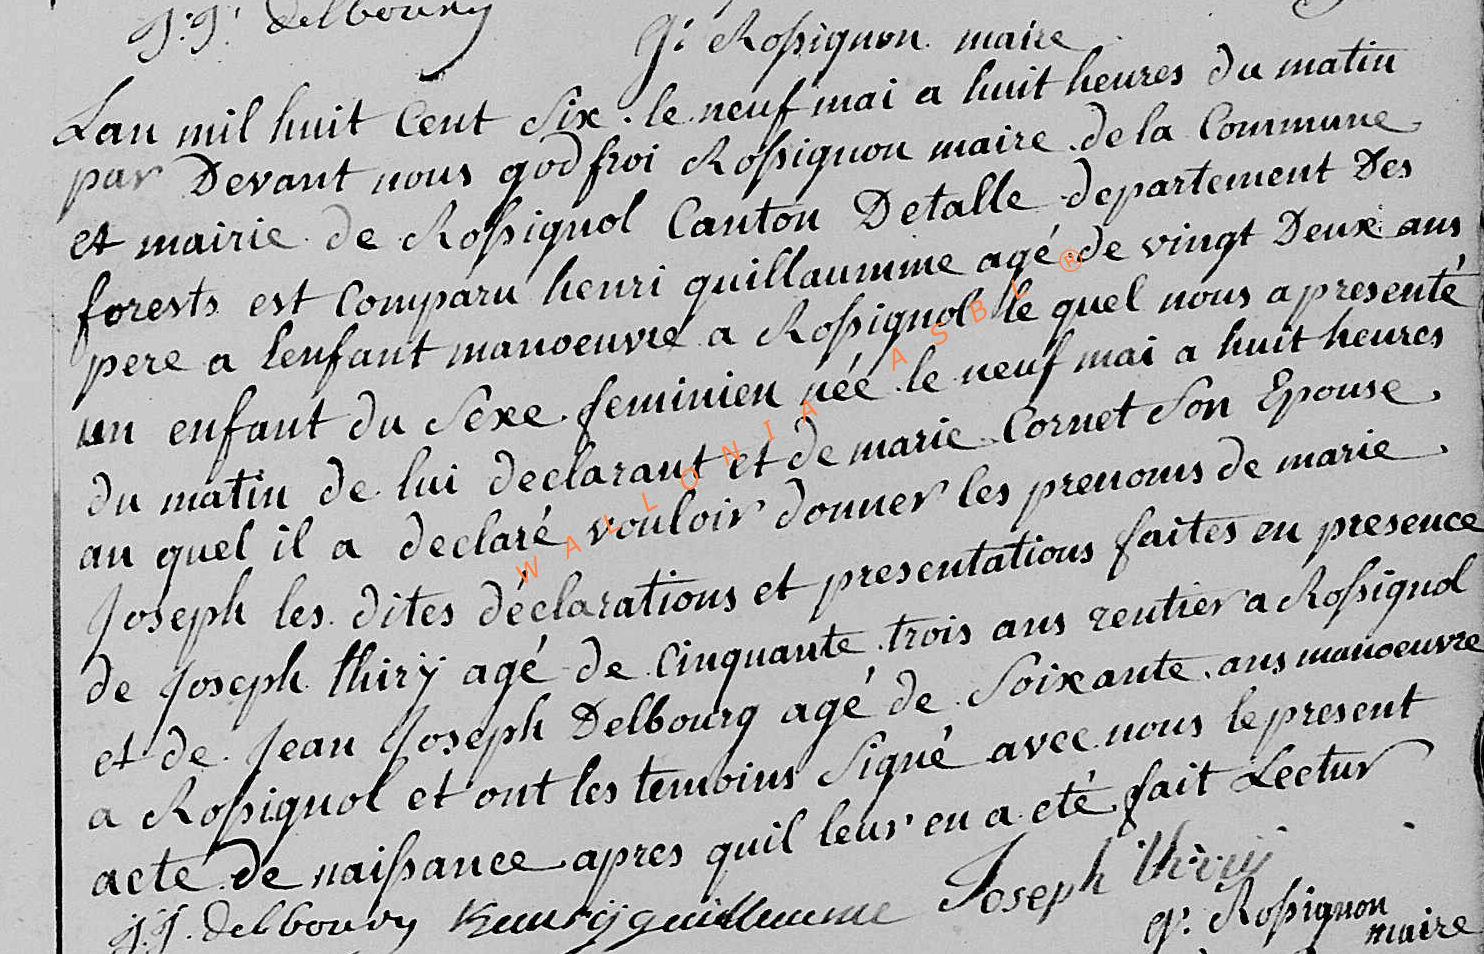 J: J: delbourg
G: Rossignon maire
Lan mil huit Cent Six le neuf mai a huit heures du matin
par Devant nous godfroi Rossignon maire de la Commune
et mairie de Rossignol Canton Detalle departement Des
forests est Comparu henri guillaumme agé de vingt Deux ans
pere a lenfant manoeuvre a Rossignol le quel nous a presenté
un enfant du Sexe feminien née le neuf mai a huit heures
du matin de lui declarant et de marie Cornet Son Epouse
au quel il a declaré vouloir donner les prenoms de marie
Joseph les dites déclarations et presentations faites en presence
de Joseph thirÿ agé de Cinquante trois ans rentier a Rossignol
et de Jean Joseph Delbourg agé de Soixante ans manoeuvre
a Rossignol et ont les temoins Signé avec nous le present
acte de naissance apres quil leur en a eté fait Lectur
J. J. delbourg henrij guillaumme Joseph thirij
G: Rossignon
maire
WALLONIA ASBL ®